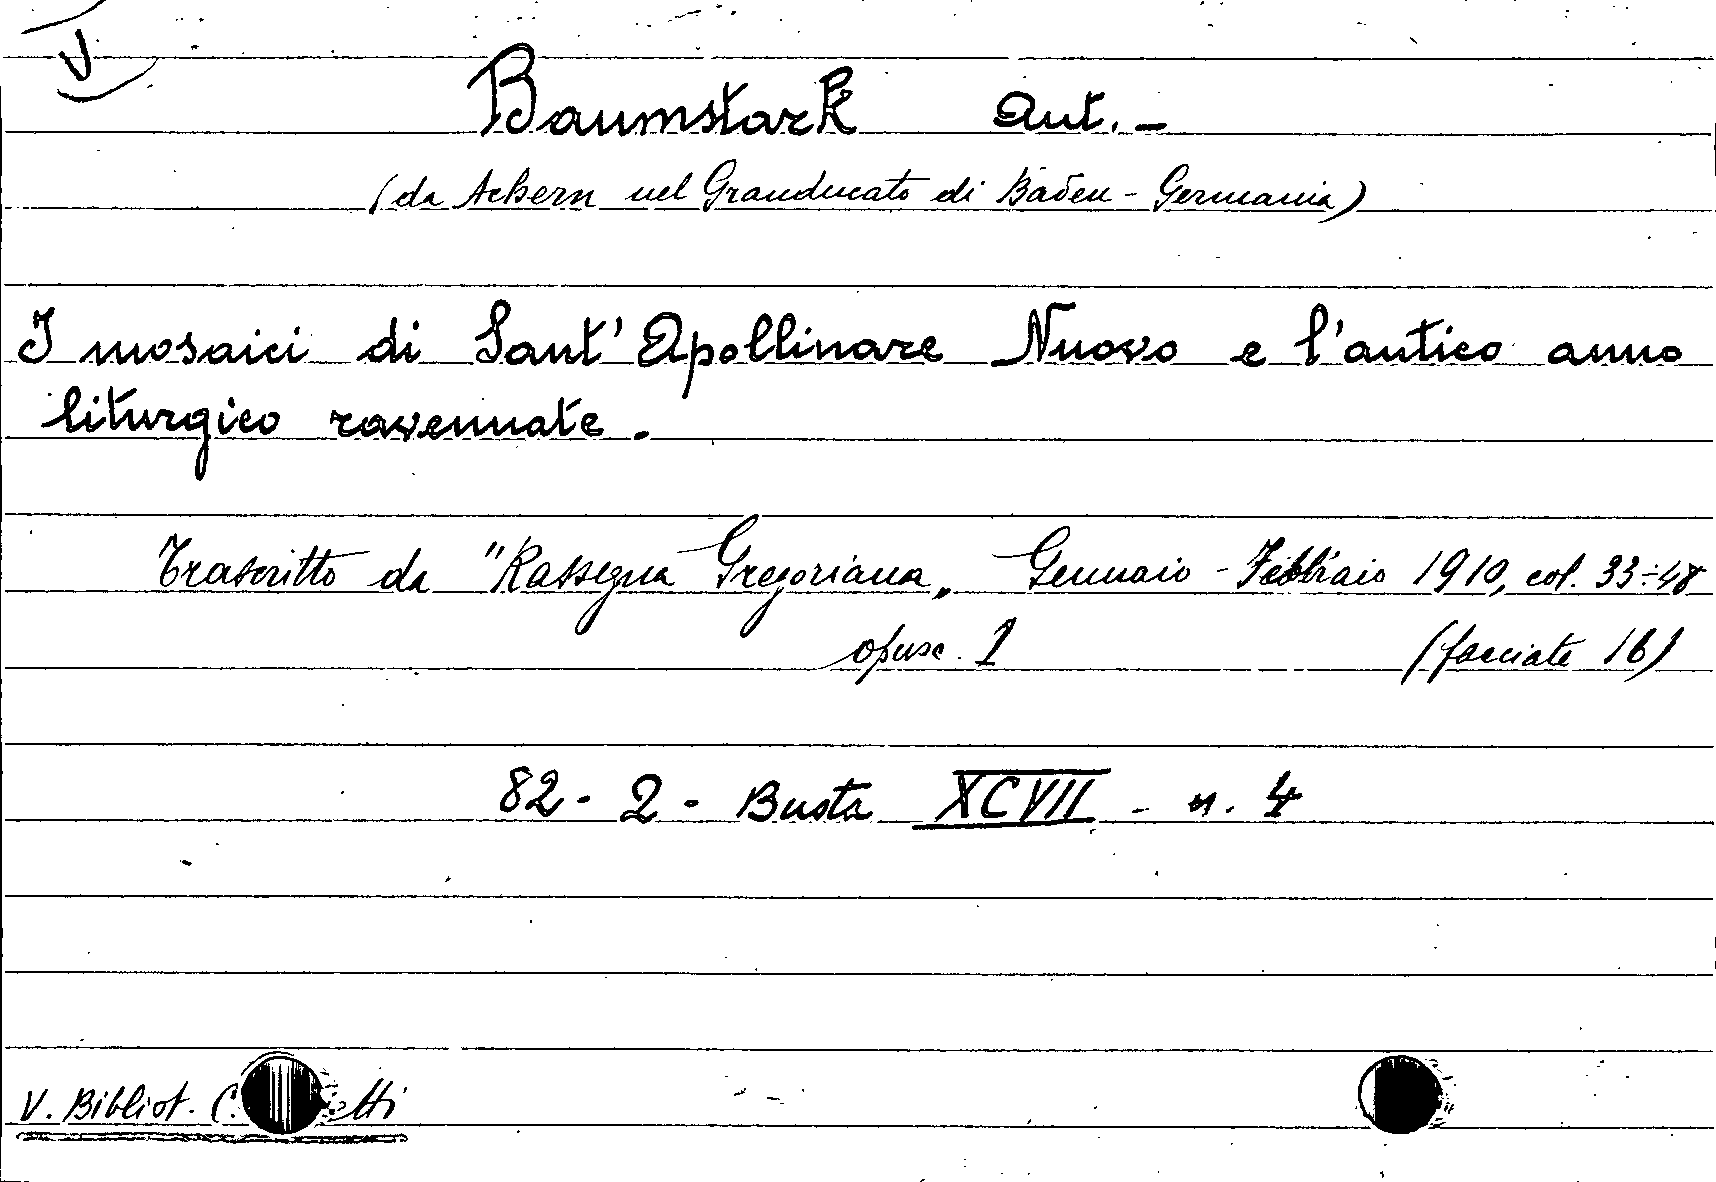 V
Baumstark Ant. -
(da Achern nel Granducato di Baden - Germania)
I mosaici di Sant'Apollinare Nuovo e l'antico anno
liturgico ravennate.
Trascritto da "Rassegna Gregoriana„ Gennaio - Febbraio 1910, col. 33÷48
opusc. 1 (facciate 16)
82 - 2 - Busta XCVII - n. 4
V. Bibliot.